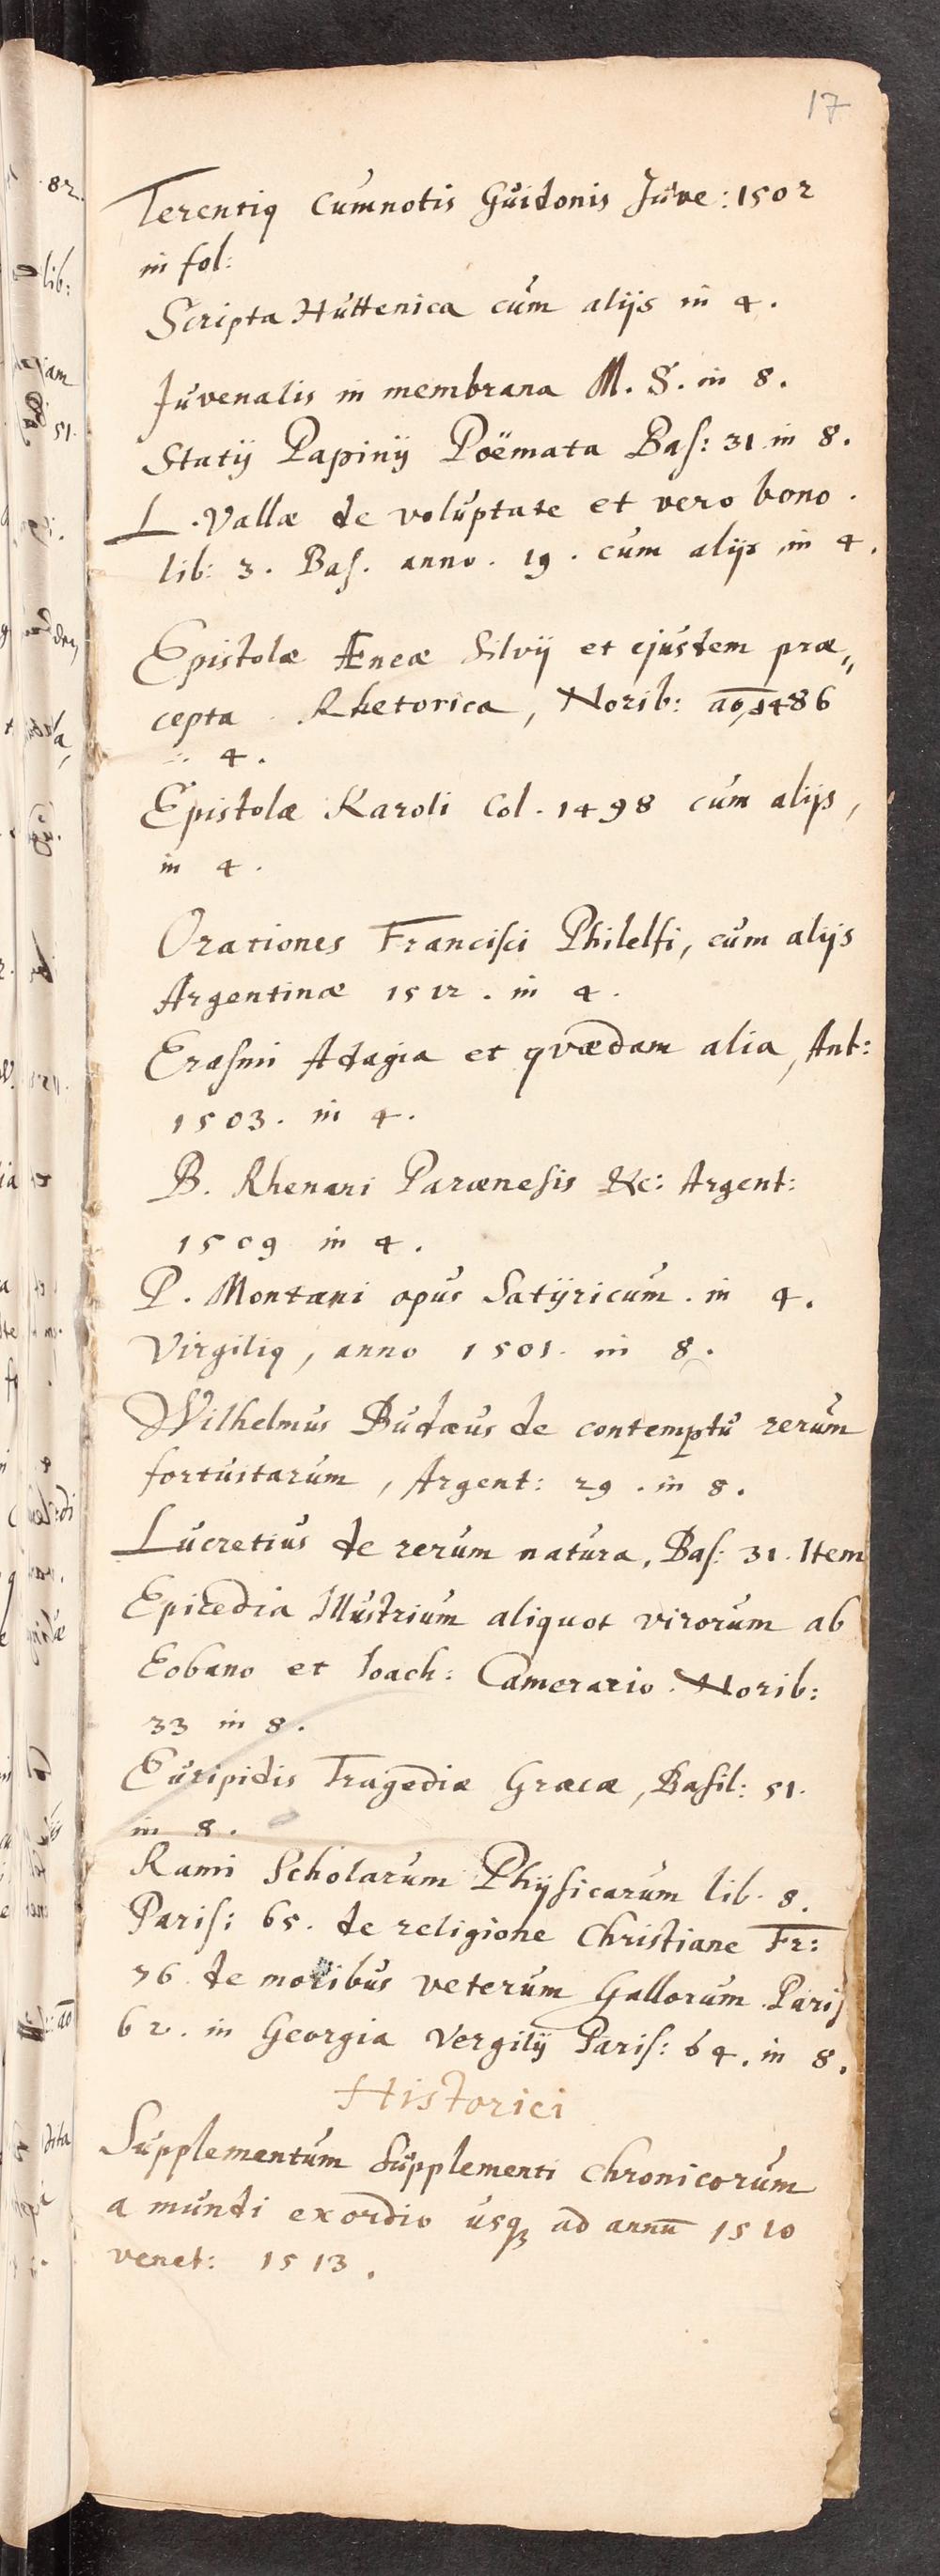 17
Terentiꝰ Cum notis Guidonis Juve: 1502
in fol:
Scripta Huttenica cum alijs in 4.
Juvenalis in membrana M. S. in 8.
Statij Papinij Poëmata Bas: 31 in 8.
L. Vallæ de voluptate et vero bono.
lib: 3. Bas. anno. 19. cum alijs in 4.
Epistolæ Æneæ Silvij et ejusdem præ„
cepta Rhetorica, Norib: aō, 1486
in 4.
Epistolæ Karoli Col. 1498 cum alijs,
in 4.
Orationes Francisci Philelfi, cum alijs
Argentinæ 1512. in 4.
Erasmi Adagia et qvædam alia, Ant:
1503. in 4.
B. Rhenani Parænesis &c: Argent:
1509 in 4.
P. Montani opus Satÿricum. in 4.
Virgiliꝰ, anno 1501. in 8.
Wilhelmus Budæus de contemptu rerum
fortuitarum, Argent: 29. in 8.
Lucretius de rerum natura, Bas: 31. Item
Epicedia Illustrium aliquot virorum ab
Eobano et Ioach: Camerario. Norib:
33 in 8.
Euripidis Tragediæ Græcæ, Basil: 51.
in 8.
Rami Scholarum Phÿsicarum lib. 8.
Paris: 65. de religione Christiane Fr:
76 de moribus veterum Gallorum Paris
62. in Georgia Vergilij Paris: 64. in 8.
Historici
Supplementum Supplementi Chronicorum
a mundi exordio usqꝫ ad annū 1510
venet: 1513.